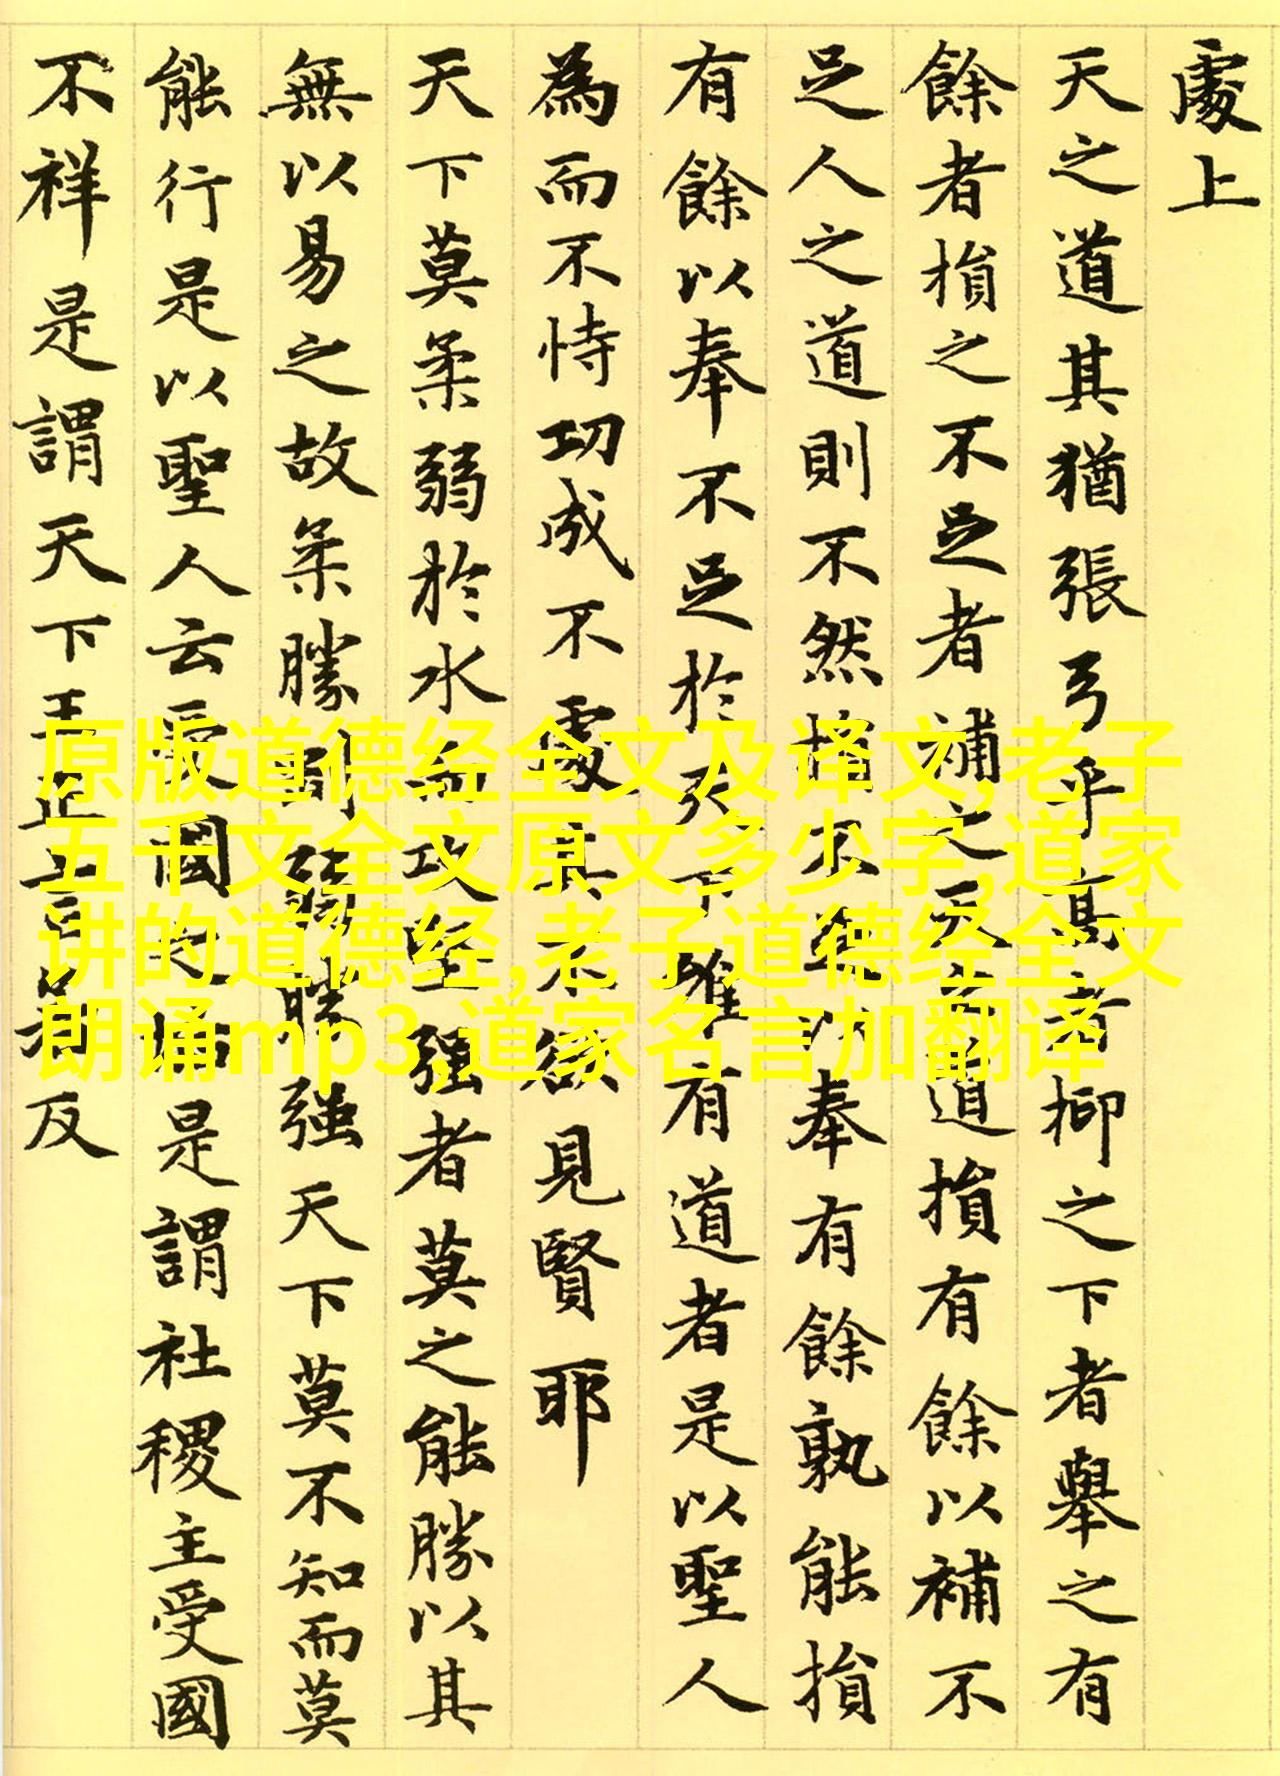 處上
天之道其猶張弓乎髙者抑之下者舉之有
餘者損之不足者補之天之道損有餘以補不
足人之道則不然損不以奉有餘孰能損
有餘以奉不足於天下唯有道者是以聖人
為而不恃功成不處其不欲見賢耶
天下莫柔弱於水而攻堅强者莫之能勝以其
無以易之故柔勝剛弱勝強天下莫不知而莫
能行是以聖人云受國之垢是謂社稷主受國
不祥是謂天下王正言若反
原版道德经全文及译文,老子
五千文全文原文多少字,道家
讲的道德经,老子道德经全文
朗诵mp3,道家名言加翻译